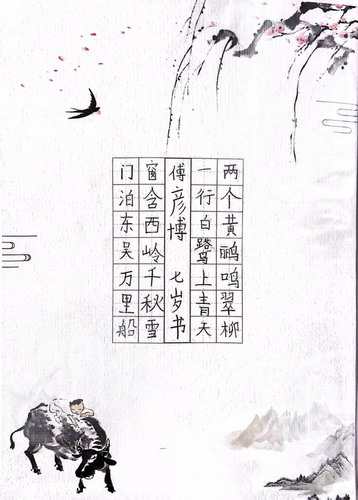 两个黄鹂鸣翠柳
一行白鹭上青天
傅彦博 七岁书
窗含西岭千秋雪
门泊东吴万里船